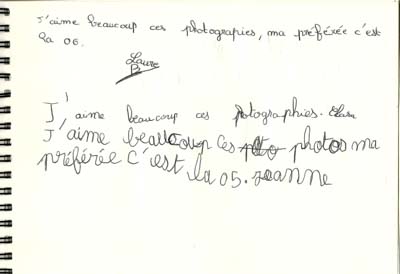 J'aime beaucoup ces photograpies, ma préféxée c'est
la 06.
Laure
B.
J'aime beaucoup ces photographies. Clara
J'aime beaucoup ces photos ma
préférée c'est
la 05. Jeanne